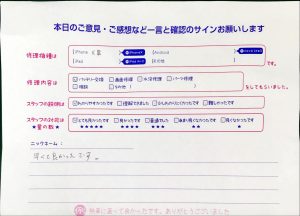 本日のご意見・ご感想など一言と確認のサインお願いします
修理機種は
iPhone
Android
iPad
その他
です。
修理内容は
バッテリー交換 画面修理 水没修理 パーツ修理
相談 その他
をしてもらいました。
スタッフの説明は
わかりやすかったです 理解できました 少しわかりにくかったです 難しかったです
スタッフの対応は
とても良かった 良かった 普通でした あまり良くなかった 良くなかった
★星の数★
★★★★★ ★★★★ ★★★ ★★ ★
ニックネーム:
早くて良かったです。
無事に直って良かったです。ありがとうございました